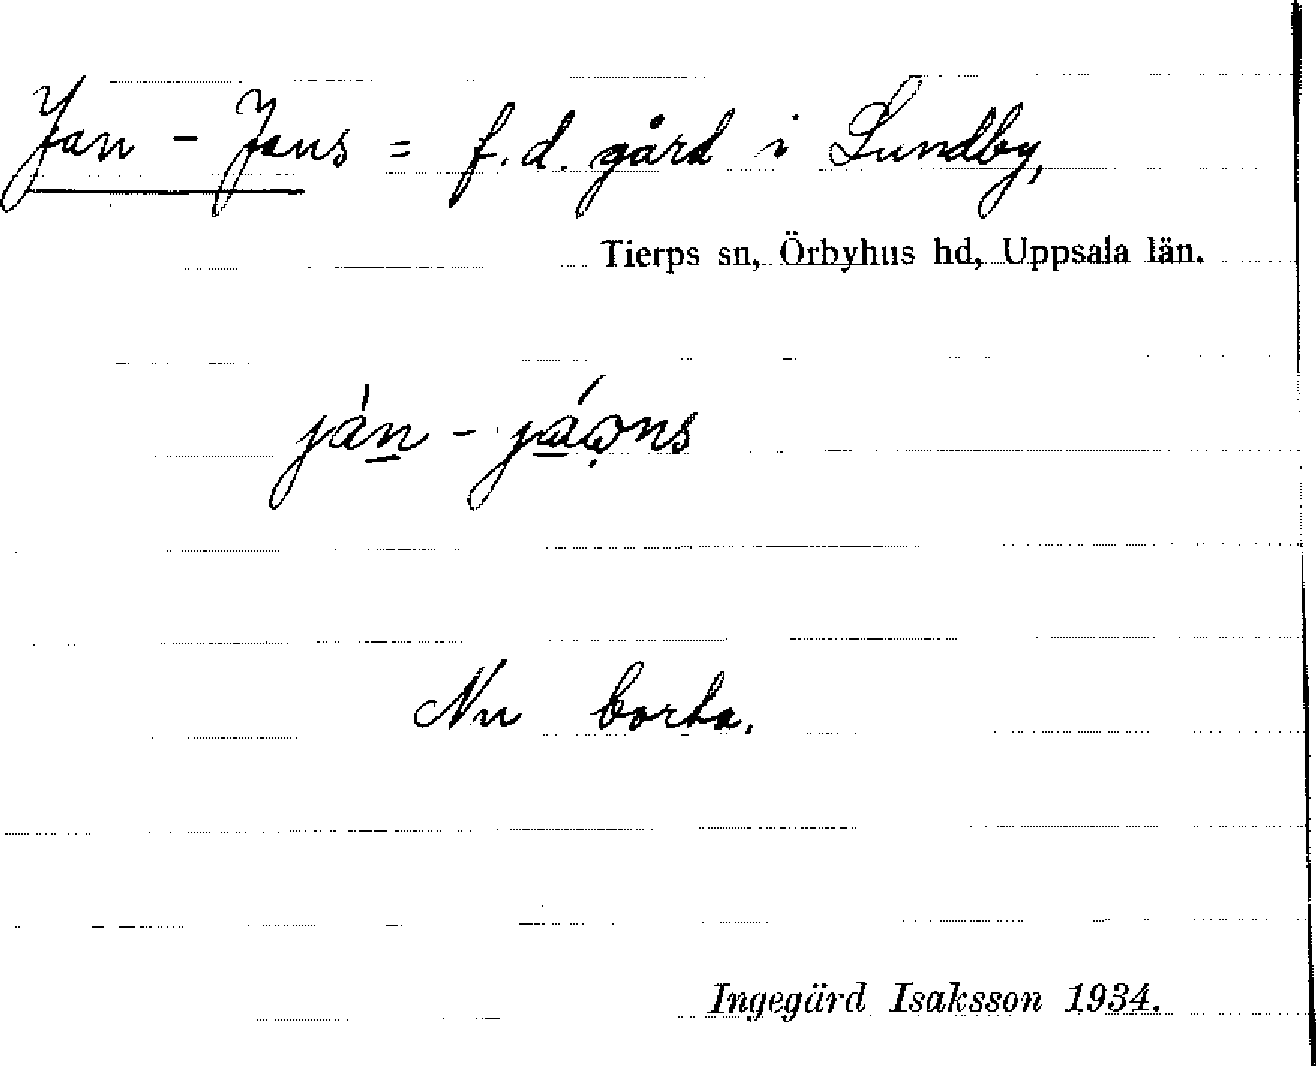 Jan - Jans = f.d. gård i Lundby,
Tierps sn, Örbyhus hd, Uppsala län.
ján -
Nu borta.
Ingegärd Isaksson 1934.